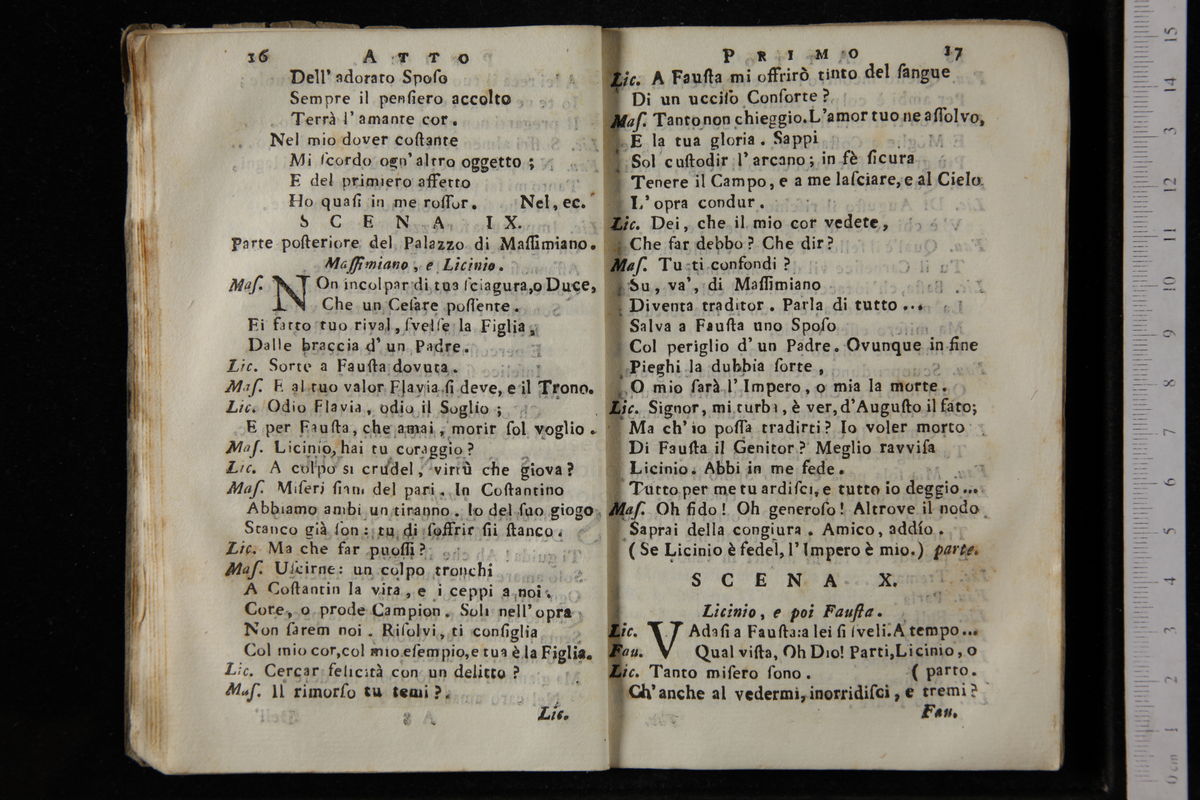 16 ATTO
Dell' adorato Spoſo
Sempre il penſiero accolto
Terrà l' amante cor.
Nel mio dover coſtante
Mi ſcordo ogn' altro oggetto;
E del primiero affetto
Ho quaſi in me roſſor. Nel, ec.
SCENA IX.
Parte poſteriore del Palazzo di Maſſimiano.
Maſſimiano, e Licinio.
Maſ. NOn incolpar di tua ſciagura, o Duce,
Che un Ceſare poſſente.
Ei fatto tuo rival, ſvelſe la Figlia,
Dalle braccia d' un Padre.
Lic. Sorte a Fauſta dovuta.
Maſ. E al tuo valor Flavia ſi deve, e il Trono.
Lic. Odio Flavia, odio il Soglio;
E per Fauſta, che amai, morir ſol voglio.
Maſ. Licinio, hai tu coraggio?
Lic. A colpo sì crudel, virtù che giova?
Maſ. Miſeri ſiam del pari. In Coſtantino
Abbiamo ambi un tiranno. Io del ſuo giogo
Stanco già ſon: tu di ſoffrir ſii ſtanco.
Lic. Ma che far puoſſi?
Maſ. Uſcirne: un colpo tronchi
A Coſtantin la vita, e i ceppi a noi.
Core, o prode Campion. Soli nell' opra
Non ſarem noi. Riſolvi, ti conſiglia
Col mio cor, col mio eſempio, e tua è la Figlia.
Lic. Cercar felicità con un delitto?
Maſ. Il rimorſo tu temi?
Lic.
PRIMO 17
Lic. A Fauſta mi offrirò tinto del ſangue
Di un ucciſo Conſorte?
Maſ. Tanto non chieggio. L'amor tuo ne aſſolvo,
E la tua gloria. Sappi
Sol cuſtodir l' arcano; in fè ſicura
Tenere il Campo, e a me laſciare, e al Cielo
L' opra condur.
Lic. Dei, che il mio cor vedete,
Che far debbo? Che dir?
Maſ. Tu ti confondi?
Su, va', di Maſſimiano
Diventa traditor. Parla di tutto...
Salva a Fauſta uno Spoſo
Col periglio d' un Padre. Ovunque in fine
Pieghi la dubbia ſorte,
O mio ſarà l' Impero, o mia la morte.
Lic. Signor, mi turba, è ver, d'Auguſto il fato;
Ma ch' io poſſa tradirti? Io voler morto
Di Fauſta il Genitor? Meglio ravviſa
Licinio. Abbi in me fede.
Tutto per me tu ardiſci, e tutto io deggio...
Maſ. Oh fido! Oh generoſo! Altrove il nodo
Saprai della congiura. Amico, addío.
(Se Licinio è fedel, l' Impero è mio.) parte.
SCENA X.
Licinio, e poi Fauſta.
Lic. VAdaſi a Fauſta: a lei ſi ſveli. A tempo...
Fau. Qual viſta, Oh Dio! Parti, Licinio, o
Lic. Tanto miſero ſono. (parto.
Ch' anche al vedermi, inorridiſci, e tremi?
Fau.